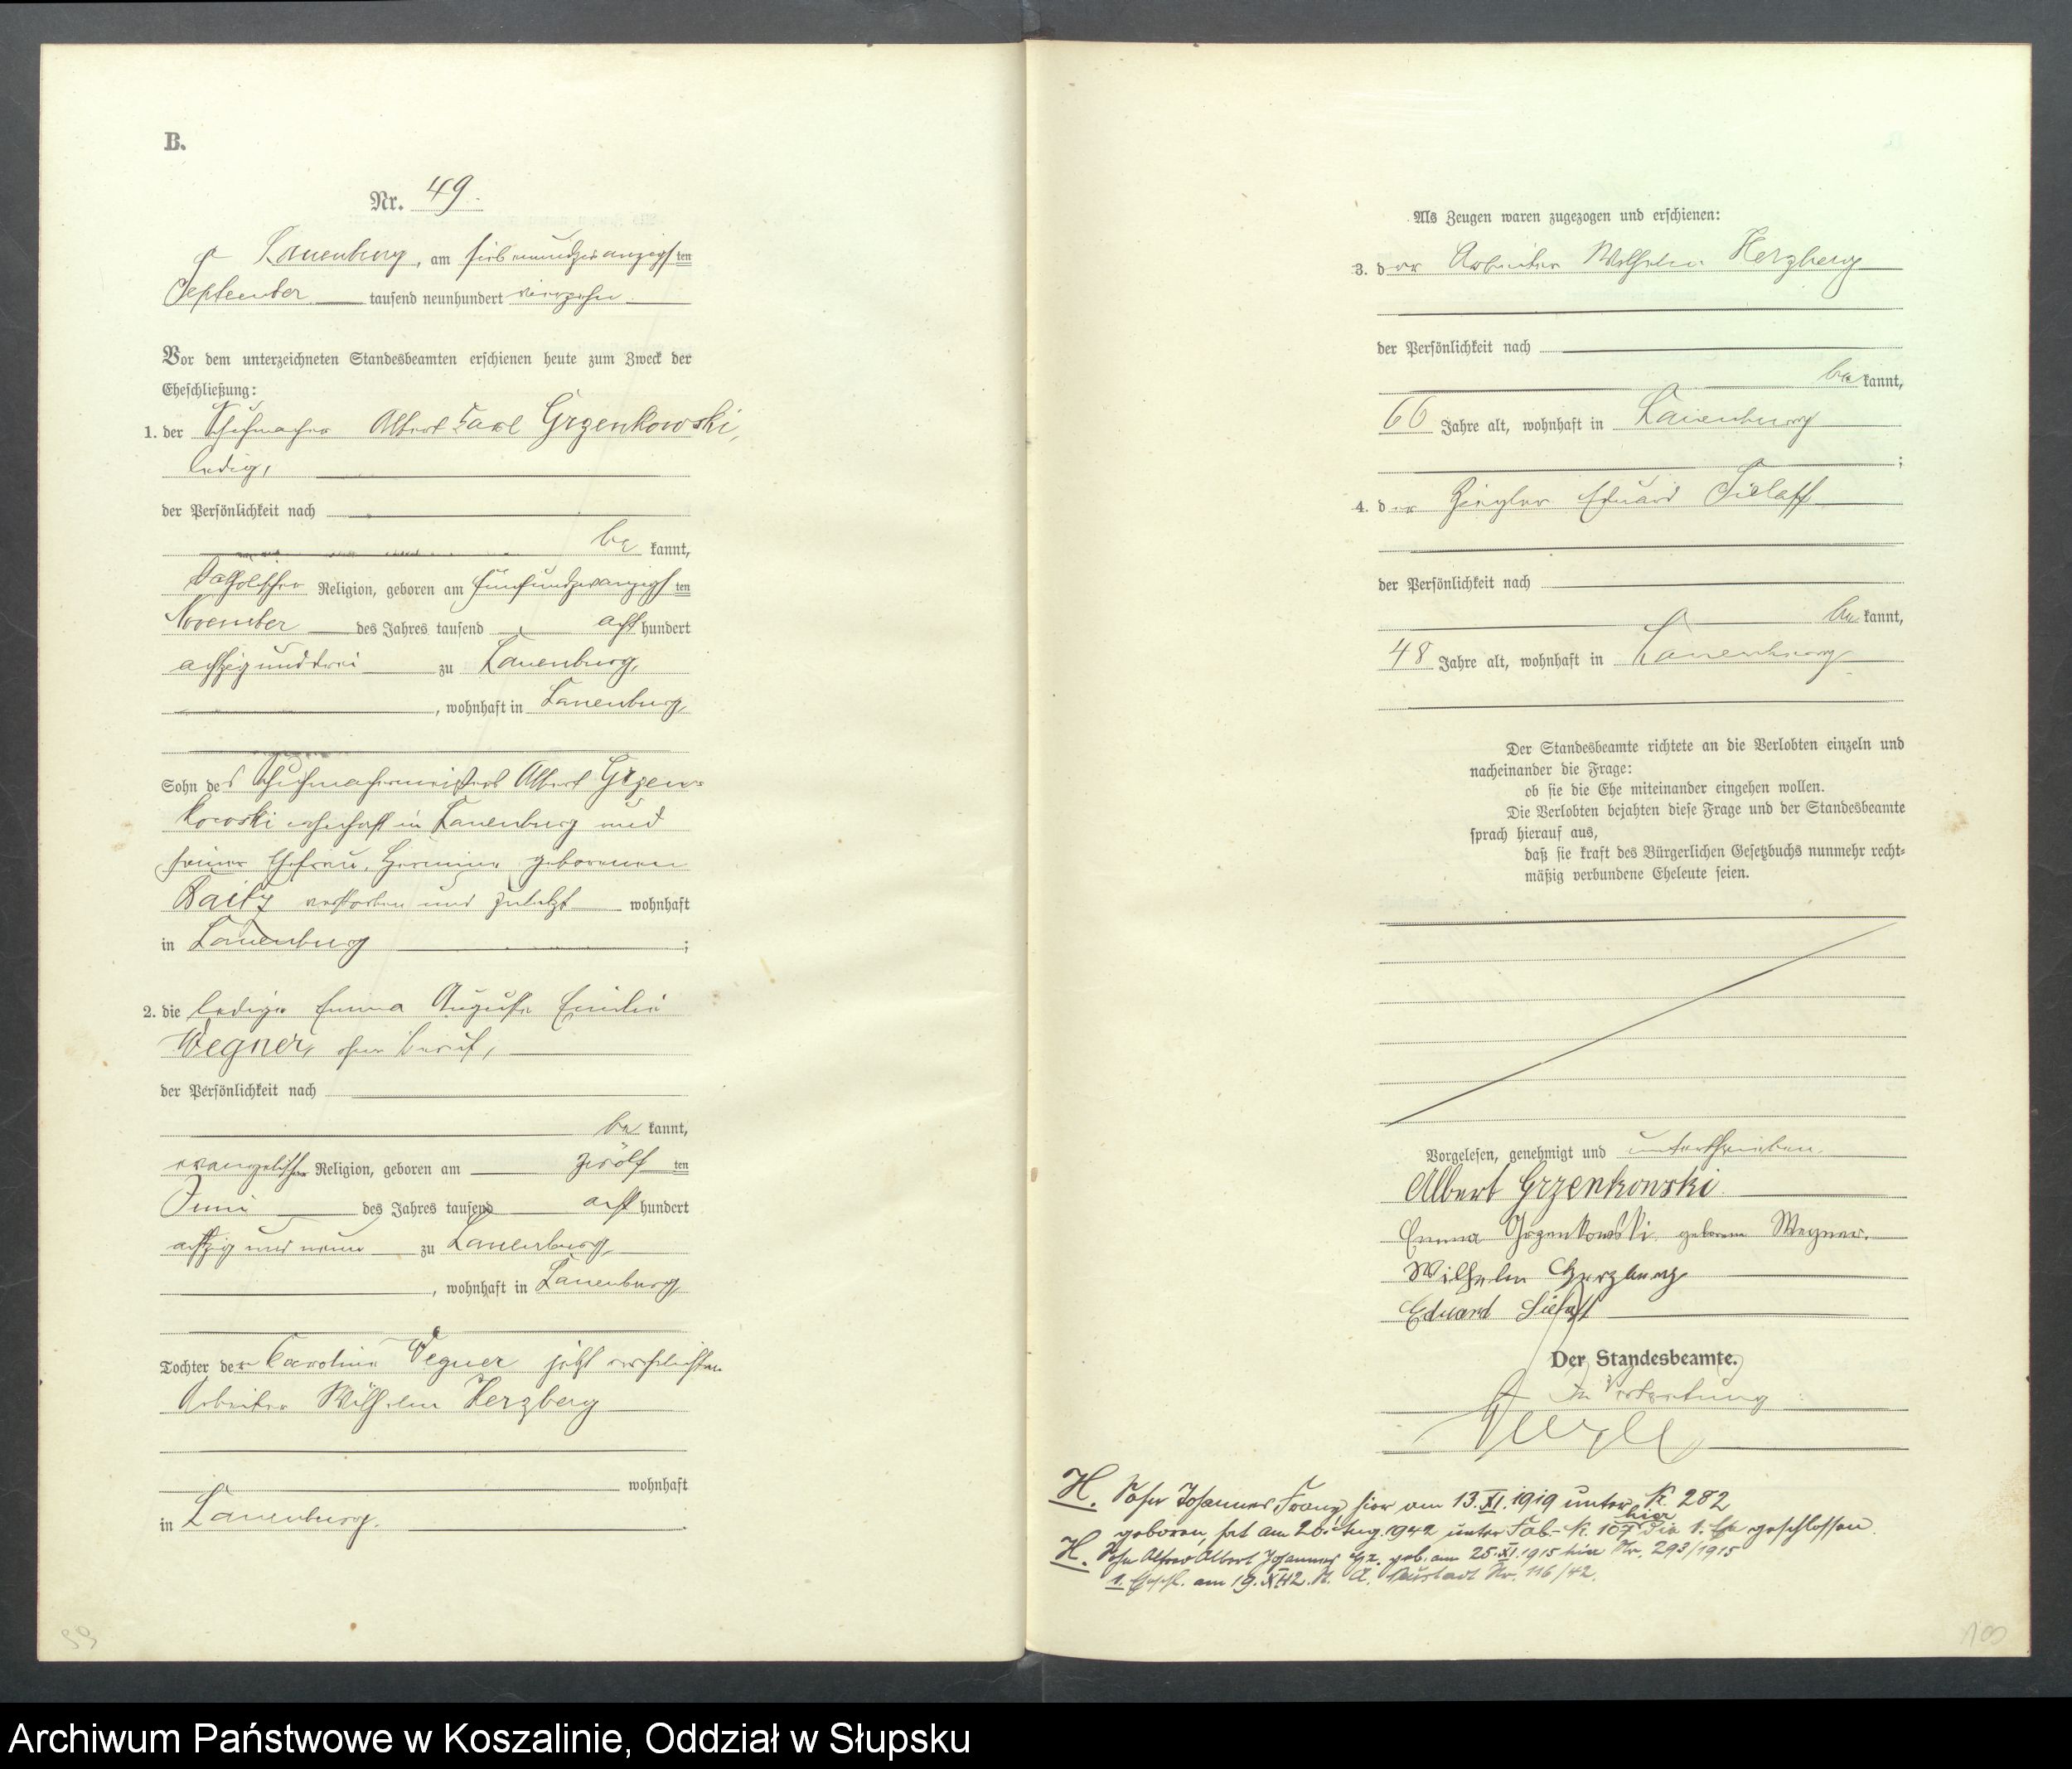 B.
Nr. 49.
Lauenburg, am siebenundzwanzigsten
September tausend neunhundert vierzehn
Vor dem unterzeichneten Standesbeamten erschienen heute zum Zweck der
Eheschließung:
1. der Schuhmacher Albert Carl Grzenkowski,
ledig,
der Persönlichkeit nach
be kannt,
katholischer Religion, geboren am fünfundzwanzigsten
November des Jahres tausend acht hundert
achtzig und drei zu Lauenburg,
, wohnhaft in Lauenburg
Sohn des Schuhmachermeisters Albert Grzen-
kowski wohnhaft in Lauenburg und
seiner Ehefrau Hermine geborenen
Raitz verstorben und zuletzt wohnhaft
in Lauenburg ;
2. die ledige Emma Auguste Emilie
Wegner, ohne Beruf,
der Persönlichkeit nach
be kannt,
evangelischer Religion, geboren am zwölf ten
Juni des Jahres tausend acht hundert
achtzig und neun zu Lauenburg
, wohnhaft in Lauenburg
Tochter der Caroline Wegner jetzt verehelichten
Arbeiter Wilhelm Herzberg
wohnhaft
in Lauenburg.
Als Zeugen waren zugezogen und erschienen:
3. der Arbeiter Wilhelm Herzberg
der Persönlichkeit nach
be kannt,
66 Jahre alt, wohnhaft in Lauenburg
;
4. der Ziegler Eduard Sielaff
der Persönlichkeit nach
be kannt,
48 Jahre alt, wohnhaft in Lauenburg
Der Standesbeamte richtete an die Verlobten einzeln und
nacheinander die Frage:
ob sie die Ehe miteinander eingehen wollen.
Die Verlobten bejahten diese Frage und der Standesbeamte
sprach hierauf aus,
daß sie kraft des Bürgerlichen Gesetzbuchs nunmehr recht-
mäßig verbundene Eheleute seien.
Vorgelesen, genehmigt und unterschrieben.
Albert Grzenkowski
Emma Grzenkowski geborene Wegner.
Wilhelm Herzberg
Eduard Sielaff
Der Standesbeamte.
In Vertretung:
H. Sohn Johannes Franz, hier am 13.XI.1919 unter N. 282
geboren, hat am 20. Aug. 1942 unter Fab.-N. 107 hier die 1. Ehe geschlossen.
H. Sohn Alfred Albert Johannes Gr. geb. am 25.XI.1915 hier Nr. 293/1915
1. Eheschl. am 19.X.42. St. A. Neustadt Nr. 116/42.
99
100
Archiwum Państwowe w Koszalinie, Oddział w Słupsku